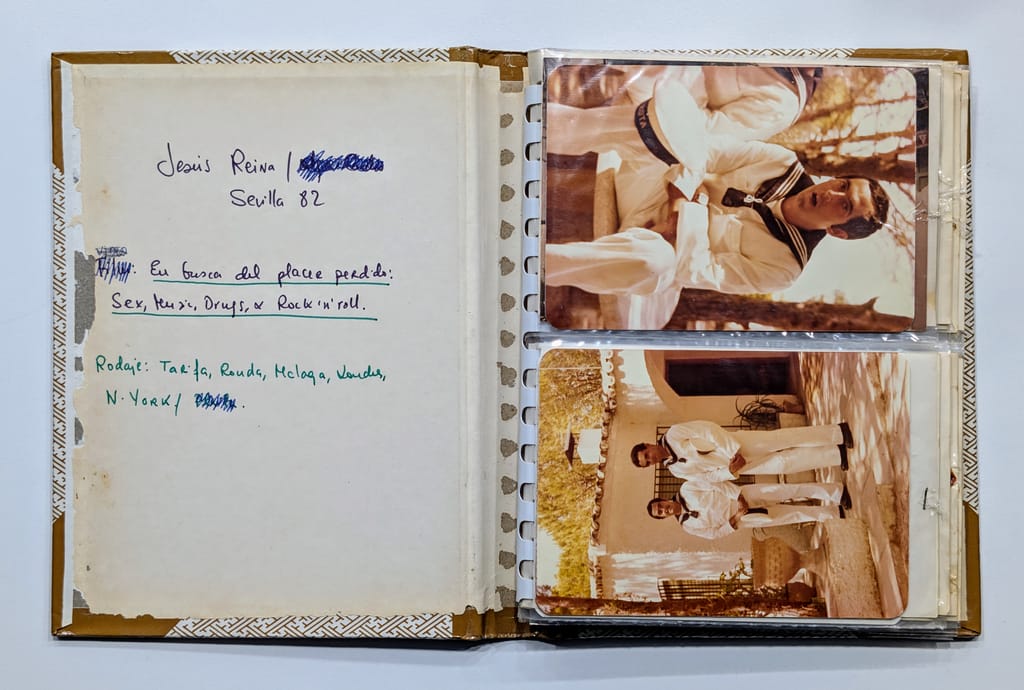 Jesús Reina /
Sevilla 82
VIDEO
: En busca del placer perdido:
Sex, Music, Drugs, & Rock 'n' roll.
Rodaje: Tarifa, Ronda, Málaga, Londres,
N. YORK /